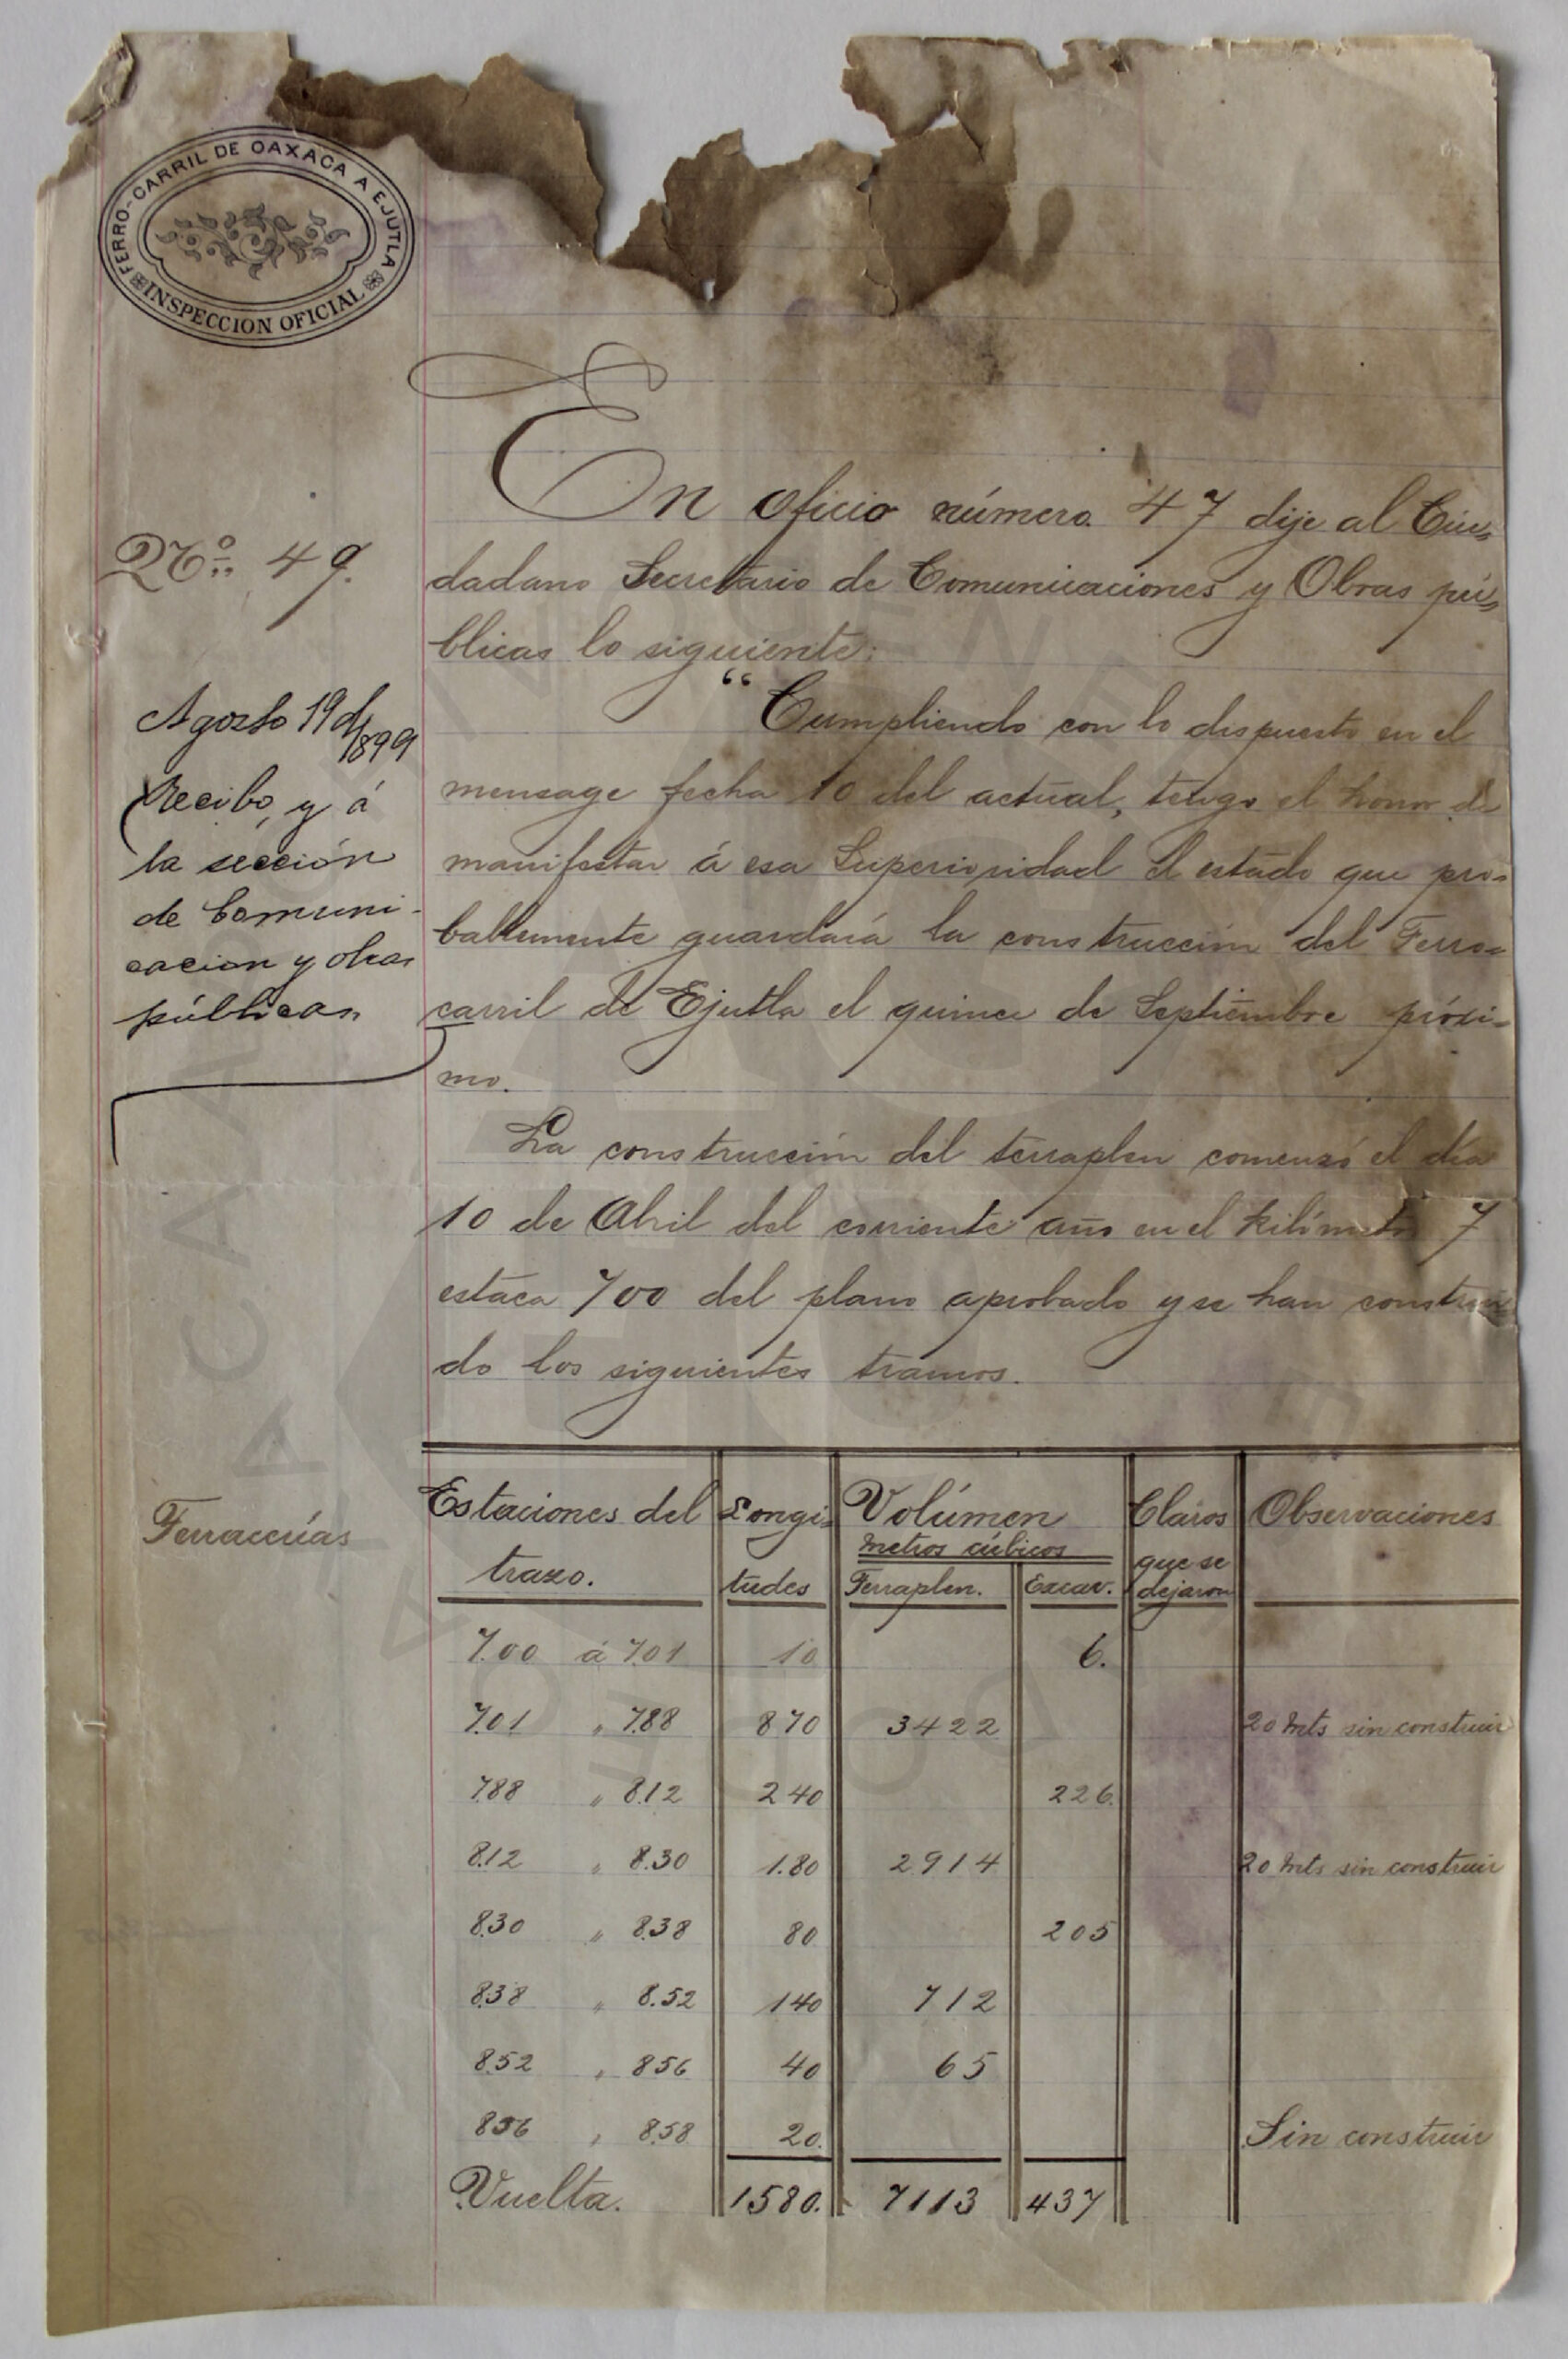 FERRO-CARRIL DE OAXACA A EJUTLA
INSPECCION OFICIAL
No. 49.
Agosto 19 de 1899
Recibo, y á
la sección
de Comuni-
cacion y obras
públicas.
En oficio número 47 dije al Ciu-
dadano Secretario de Comunicaciones y Obras pú-
blicas lo siguiente:
"Cumpliendo con lo dispuesto en el
mensage fecha 10 del actual, tengo el honor de
manifestar á esa Superioridad el estado que pro-
bablemente guardará la construcción del Ferro-
carril de Ejutla el quince de Septiembre próxi-
mo.
La construcción del terraplen comenzó el día
10 de Abril del corriente año en el kilómetro 7
estaca 700 del plano aprobado y se han construi
do los siguientes tramos.
Terracerías
Estaciones del trazo. Longitudes Volúmen metros cúbicos Terraplen. Excav. Claros que se dejaron Observaciones
7.00 á 7.01 10 6.
7.01 " 7.88 870 3422 20 mts sin construir
7.88 " 8.12 240 226.
8.12 " 8.30 1.80 2914 20 mts sin construir
8.30 " 8.38 80 205
8.38 " 8.52 140 712
8.52 " 856 40 65
856 " 8.58 20. Sin construir
Vuelta. 1580. 7113 437